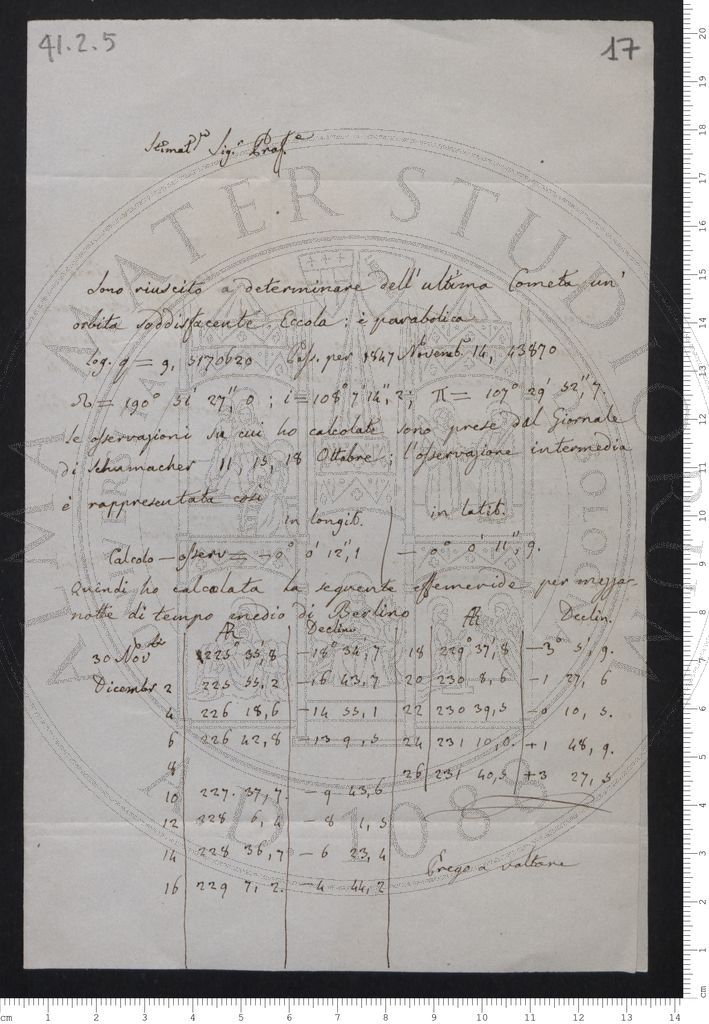 41.2.5
17
Stimat.mo Sig.r Prof.e
Sono riuscito a determinare dell'ultima Cometa un'
orbita soddisfacente. Eccola: è parabolica
log. q = 9,5170620 Pass. per 1847 Novemb. 14,43870
☊ = 190° 51' 27",0; i = 108° 7' 14",2; π = 107° 29' 52",7.
le osservazioni su cui ho calcolate sono prese dal Giornale
di Schumacher 11, 15, 18 Ottobre; l'osservazione intermedia
è rappresentata così
in longit. in latit.
Calcolo — osserv = -0° 0' 12",1 — 0° 0' 11",9.
Quindi ho calcolata la seguente effemeride per mezza-
notte di tempo medio di Berlino
AR Declin. AR Declin.
30 Novbe 225° 35',8 -18° 34',7 18 229° 37',8 -3° 5',9.
Dicembr 2 225 55,2 -16 43,7 20 230 8,6 -1 27,6
4 226 18,6 -14 55,1 22 230 39,5 -0 10,5.
6 226 42,8 -13 9,5 24 231 10,0. +1 48,9.
8 26 231 40,5 +3 27,5
10 227. 37,7. -9 43,6
12 228 6,4 -8 1,5
14 228 36,7 -6 23,4
16 229 7,2. -4 44,2
Prego a voltare
ALMA MATER STUDIORUM
A.D. 1088